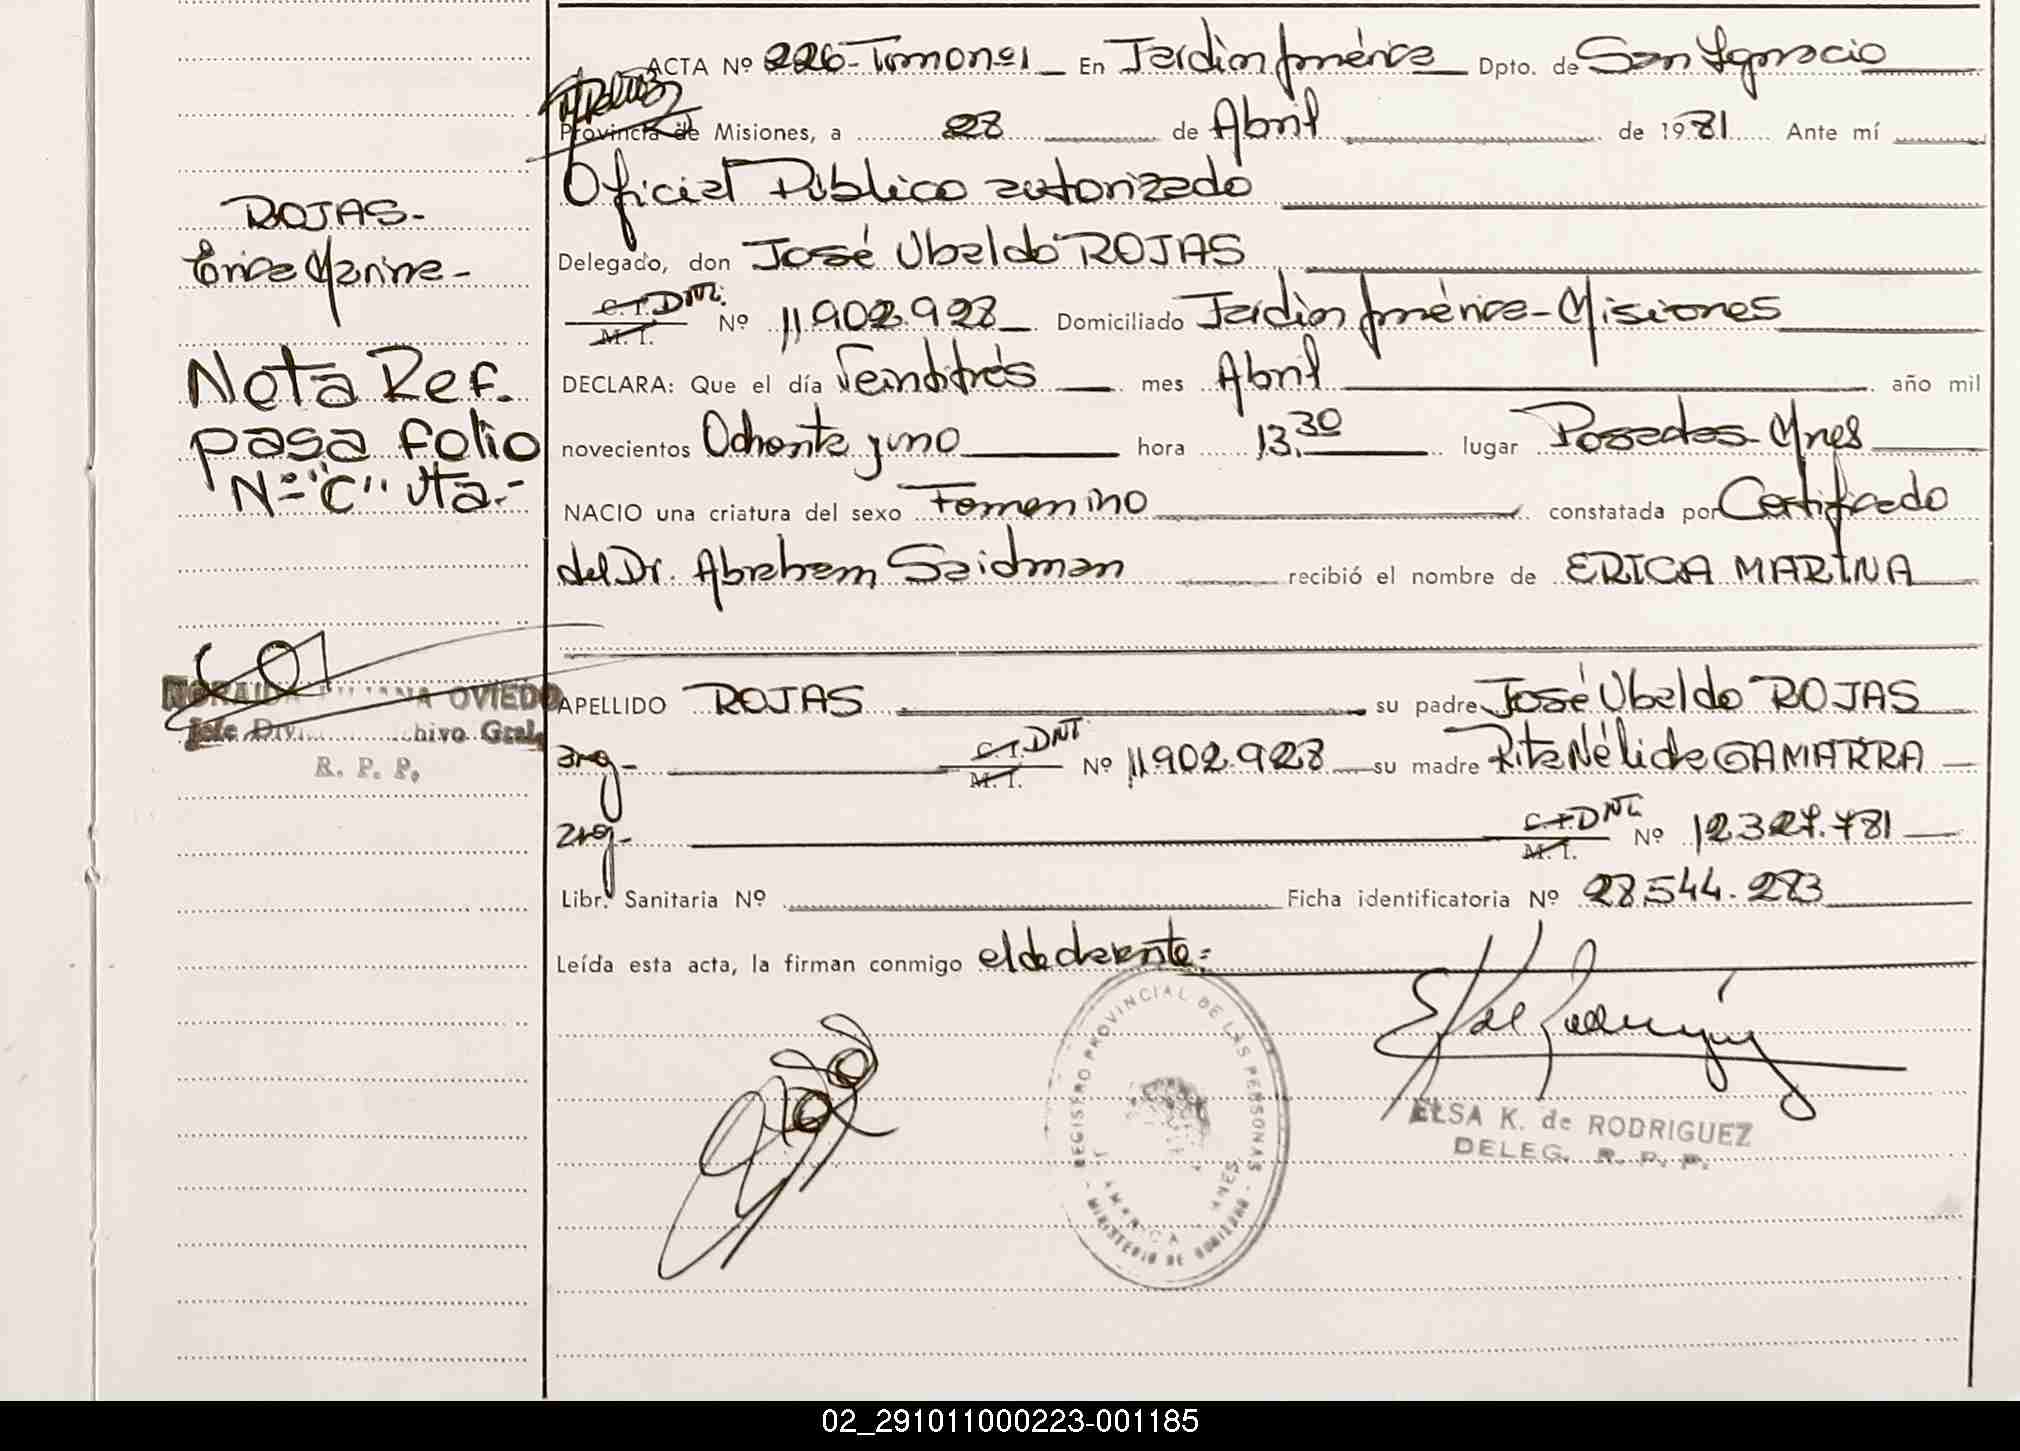 ACTA Nº 226-Tomo nº1 En Jardín América Dpto. de San Ignacio
Provincia de Misiones, a 28 de Abril de 1981 Ante mí
Oficial Público autorizado
ROJAS-
Delegado, don José Ubaldo ROJAS
Erica Marina-
C.I. DNI. M.I. Nº 11.902.928 Domiciliado Jardín América-Misiones
Nota Ref.
DECLARA: Que el día Veintitrés mes Abril año mil
pasa folio
novecientos Ochenta y uno hora 13.30 lugar Posadas-Mnes
Nº "C" Vta.-
NACIO una criatura del sexo Femenino constatada por Certificado
del Dr. Abraham Saidman recibió el nombre de ERICA MARINA
OVIEDO
APELLIDO ROJAS su padre José Ubaldo ROJAS
Jefe Div. chivo Gral.
R. P. P.
arg- C.I. DNI M.I. Nº 11902.928 su madre Rita Nélida GAMARRA
arg- C.I. DNI. M.I. Nº 12.327.781
Libr. Sanitaria Nº Ficha identificatoria Nº 28.544.283
Leída esta acta, la firman conmigo el declarante=
REGISTRO PROVINCIAL DE LAS PERSONAS
MINISTERIO DE GOBIERNO
ELSA K. de RODRIGUEZ
DELEG. R. P. P.
02_291011000223-001185